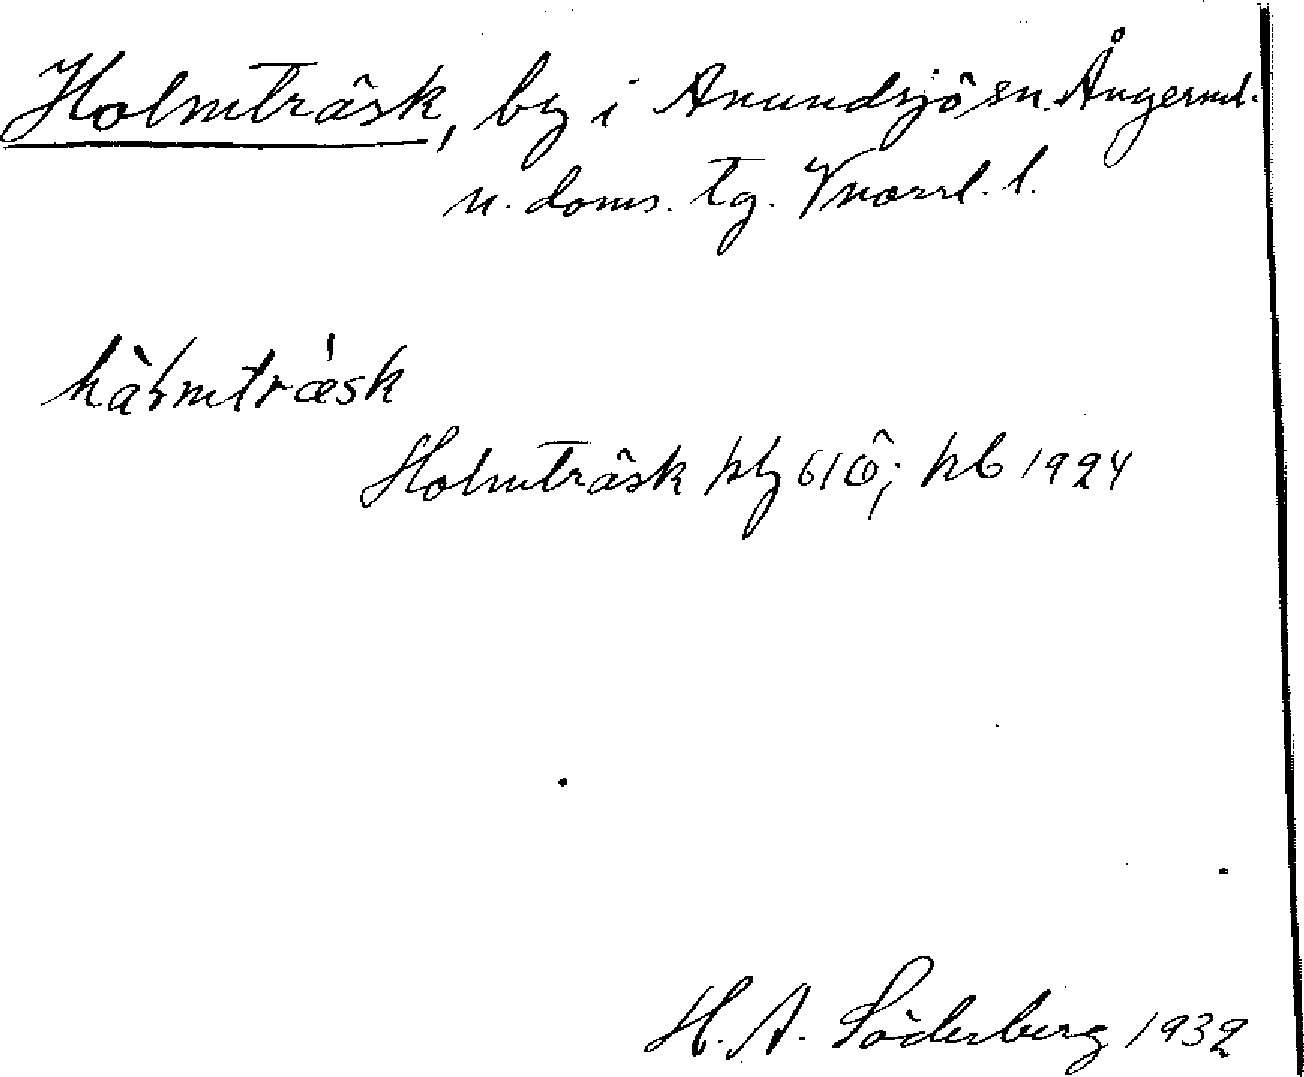 Holmträsk, by i Anundsjö sn. Ångerml.
n. doms. tg. Vnorrl. l.
Holmträsk pbg 616; pb 1924
H. A. Söderberg 1932